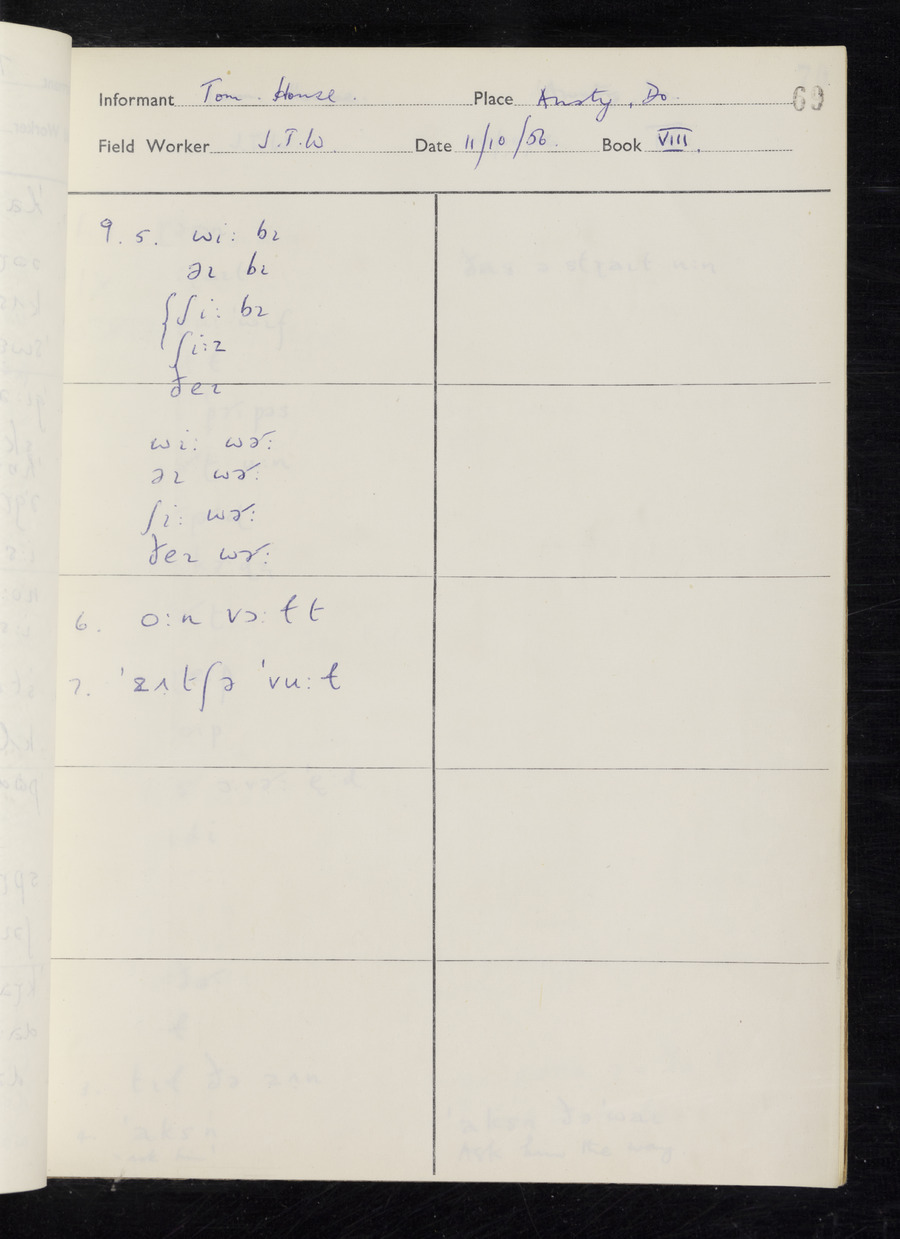 Informant Tom House. Place Ansty, Do. 69
Field Worker J.T.W Date 11/10/56. Book VIII.
9. 5. wi: bɪ
əɪ bɪ
ʃi: bɪ
ʃi:z
ðeɪ
wi: wɚ:
əɪ wɚ:
ʃi: wɚ:
ðeɪ wɚ:
6. o:n vɔ:ɫt
7. 'zʌtʃə 'vu:ɫ